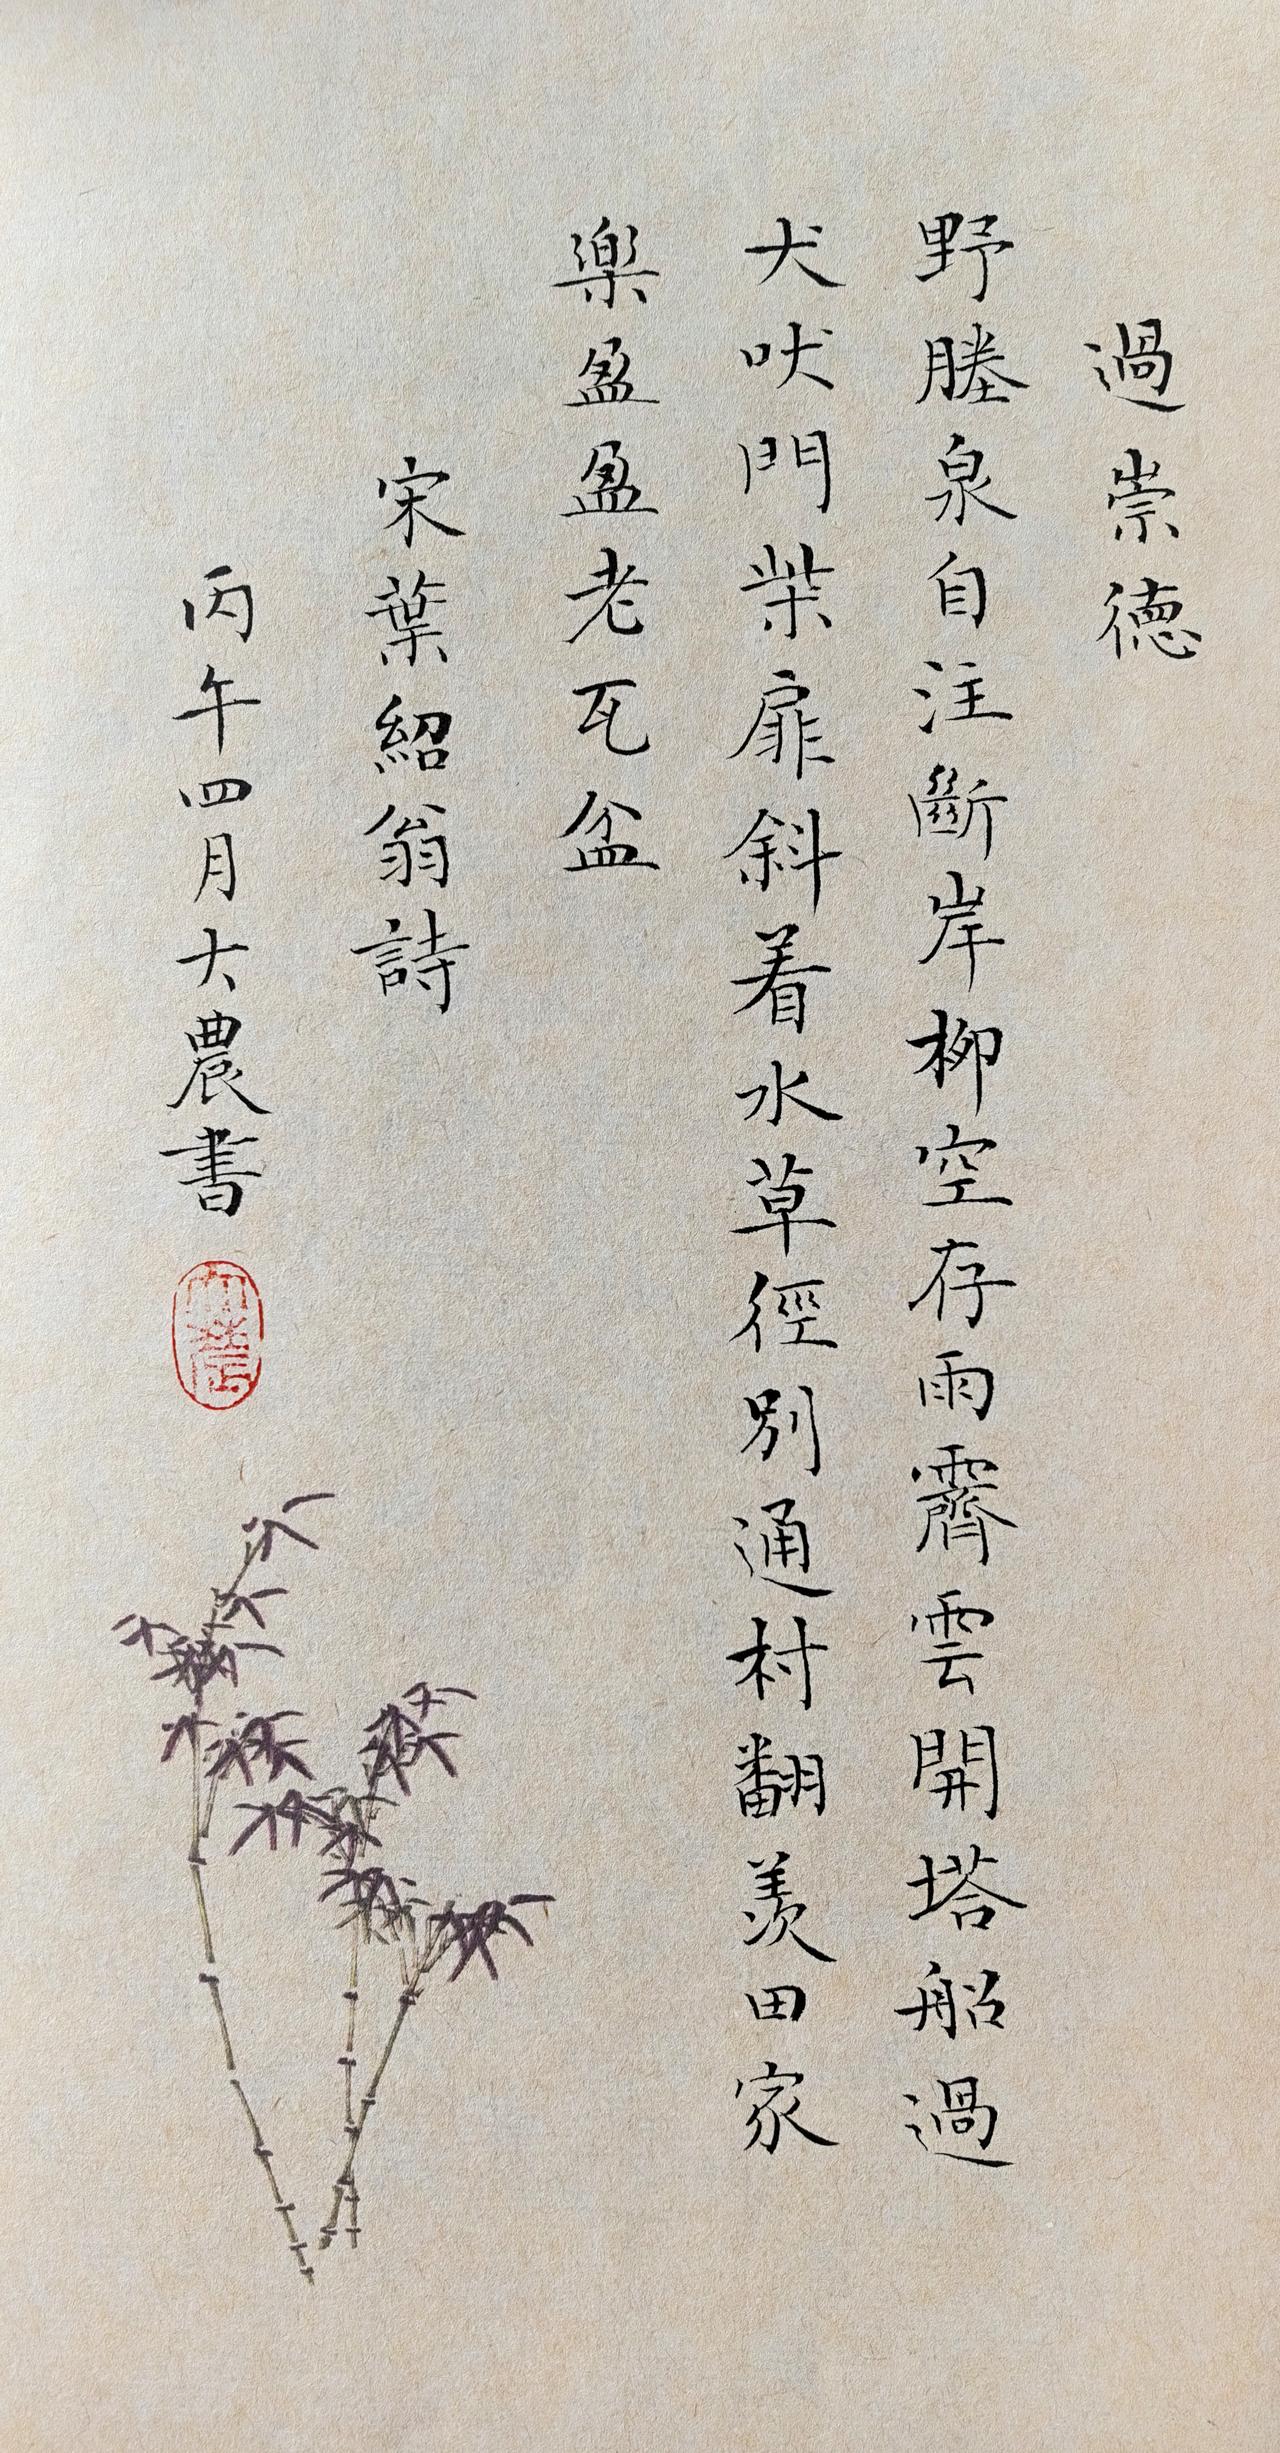 過崇德
野塍泉自注斷岸柳空存雨霽雲開塔船過
犬吠門柴扉斜着水草徑別通村翻羨田家
樂盈盈老瓦盆
宋葉紹翁詩
丙午四月大農書